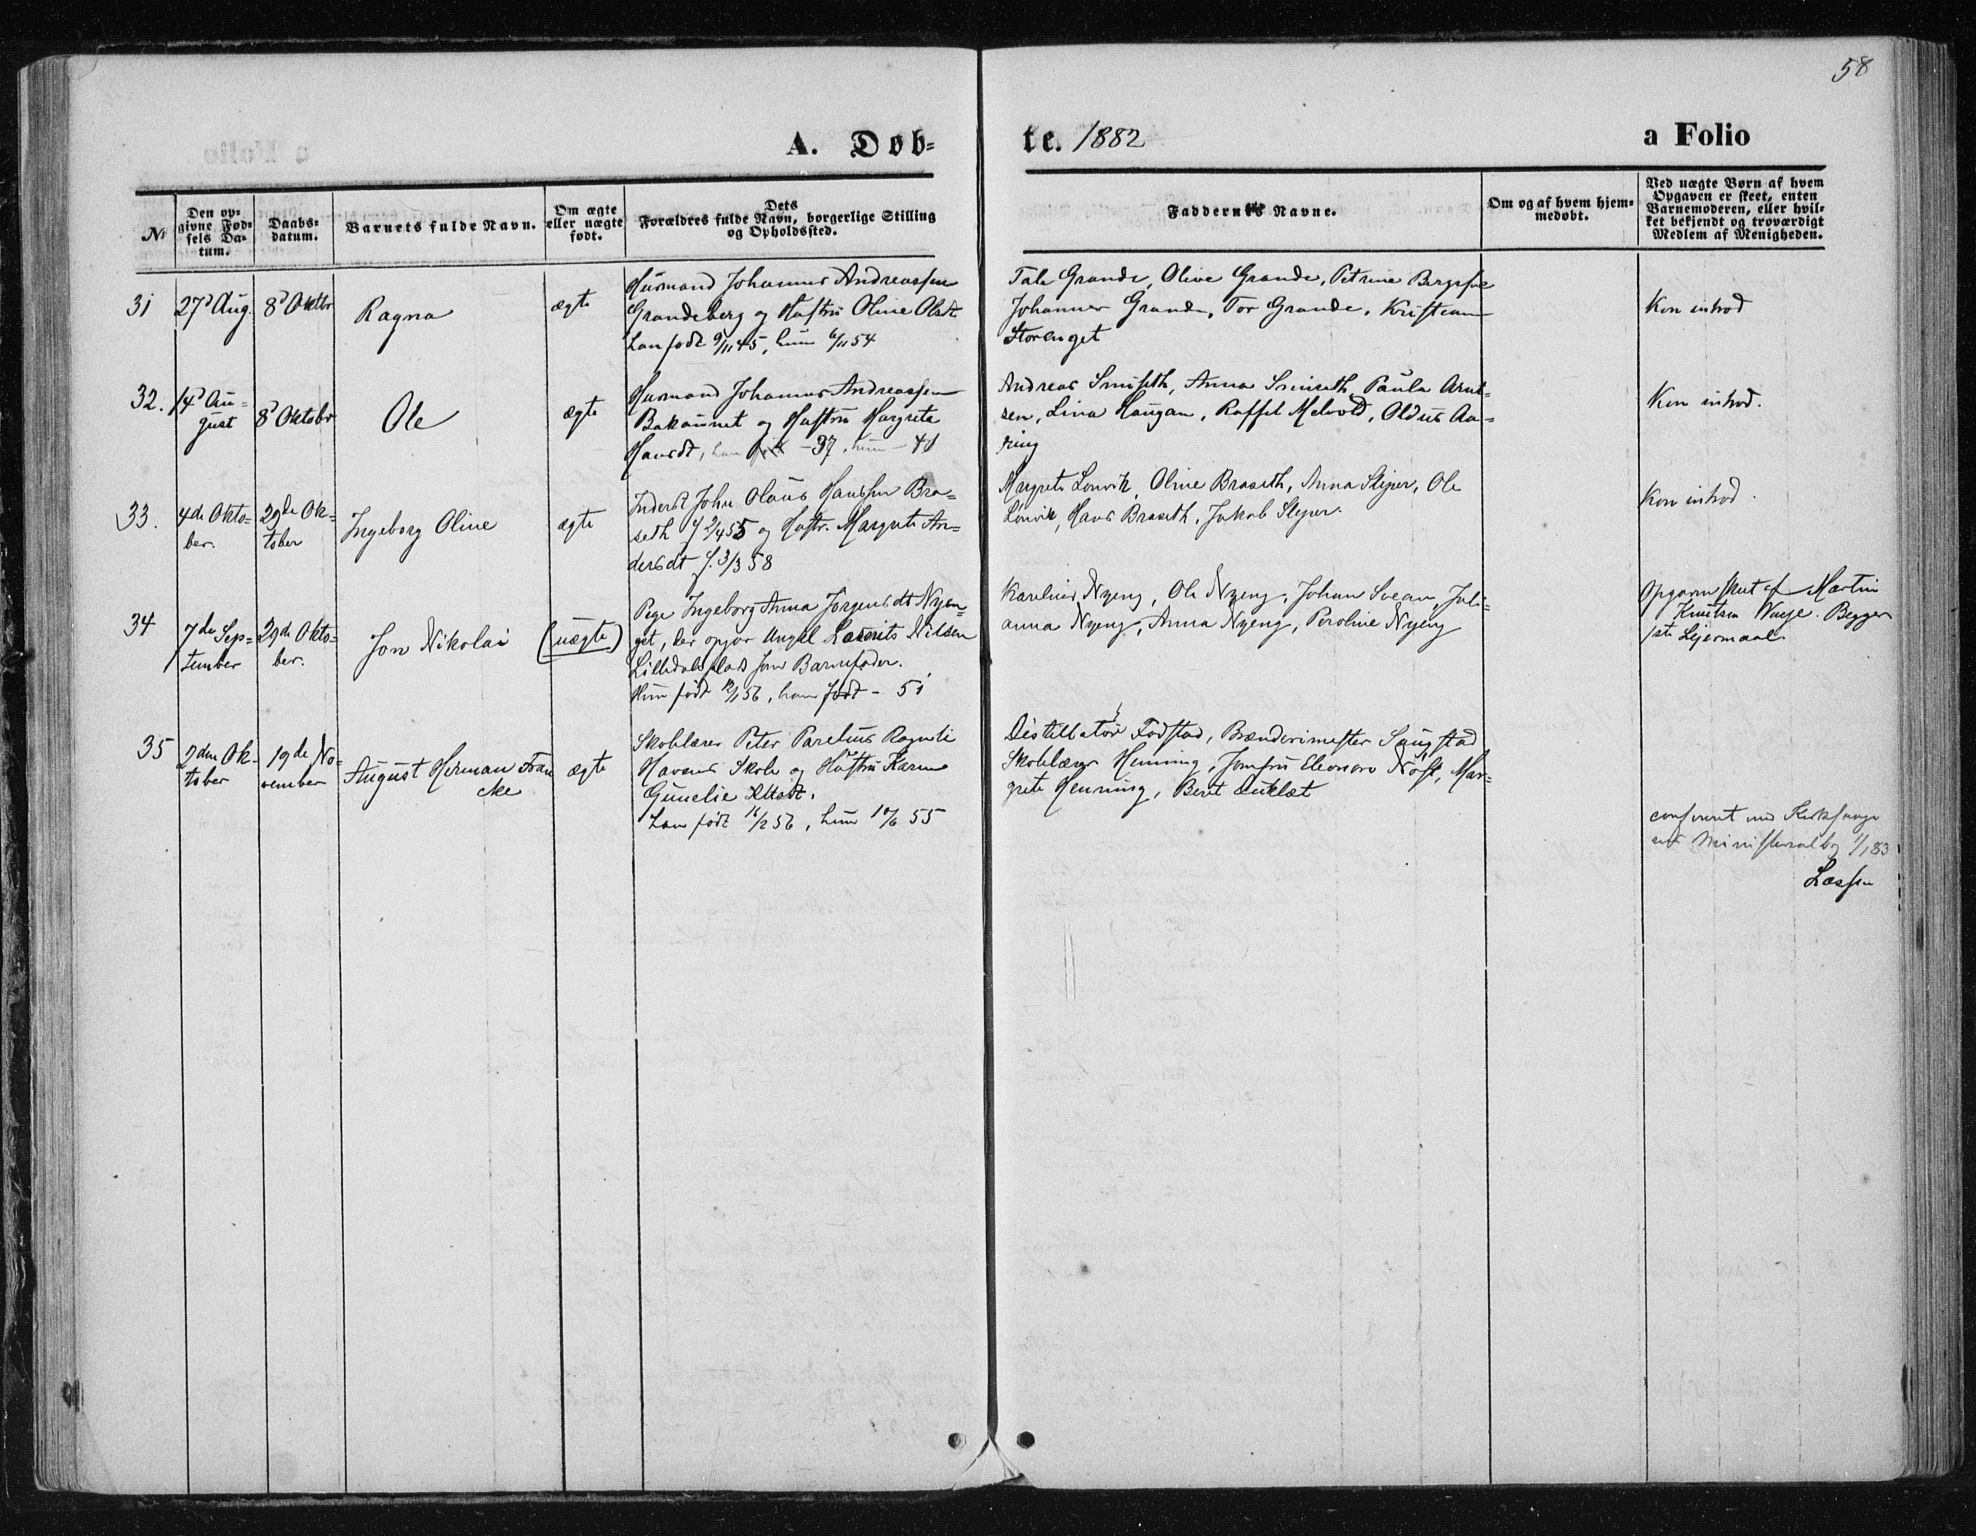 58
A. Døb-
te. 1882
a Folio
No
Den op-
givne Fød-
sels Da-
tum.
Daabs-
datum.
Barnets fulde Navn.
Om ægte
eller uægte
født.
Dets
Forældres fulde Navn, borgerlige Stilling
og Opholdssted.
Faddernes Navne.
Om og af hvem hjem-
medøbt.
Ved uægte Børn af hvem
Opgaven er skeet, enten
Barnemoderen, eller hvil-
ket bekjendt og troværdigt
Medlem af Menigheden.
31
27d Aug.
8d Oktbr
Ragna
ægte
Husmand Johannes Andreassen
Grandeberg og Hustru Oline Olsdt
han født 9/11 45, hun 6/11 54
Grande, Olive Grande, Petrine
Johannes Grande, Tor Grande, Kristian
Storenget
Kon introd
32.
14d Au-
gust
8d Oktobr
Ole
ægte
Husmand Johannes Andreassen
Bakaunet og Hustru Margreta
Hansdt, han født -37, hun - 41
Andreas Smiseth, Anna Smiseth, Paula Arnt-
sen, Lina Haugan, Raffel Melvold, Oldus Aa-
ring
Kon introd.
33.
4de Okto-
ber.
29de Ok-
tober
Ingeborg Oline
ægte
Inderst John Olaus Hanssen Bra-
seth f 2/4 55 og Hustr. Margrete An-
dersdt f. 3/3 58
Margrete Lonvik, Oline Braseth, Anna Slejer, Ole
Lonvik, Hans Braseth, Jakob Slejer.
Kon introd.
34
7de Sep-
tember
29de Okto-
ber.
Jon Nikolai
(uægte)
Pige Ingeborg Anna Jørgensdt Nyen-
get, der opgav Ungkl Laurits Nilsen
Lilledalsplads som Barnefader.
Hun født 12/1 56, han født - 51
Karelius Nyeng, Ole Nyeng, Johan Svean, Juli-
anna Nyeng, Anna Nyeng, Peroline Nyeng
Opgaven skeet af Martin
Knutsen. Begges
1ste Lejermaal
35
2den Ok-
tober
19de No-
vember
August Herman Fran
cke
ægte
Skolelærer Peter Parelius
Havens Skole og Hustru Karen
Gunelie
han født 16/2 56, hun 10/6 55
Distillatør Fodstad, Brænderimester Saugstad
Skolelærer Henning, Jomfru Eleonore Nøst, Mar-
grete Henning, Beret
confereret med Kirkesanger
ens Ministerialbog 1/1 83
Lassen